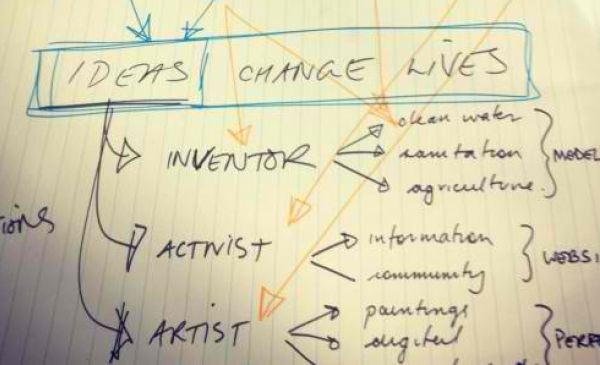 IDEAS CHANGE LIVES
clean water
INVENTOR sanitation MODEL
agriculture.
information
ACTIVIST WEBSI
community
paintings
ARTIST digital PERF